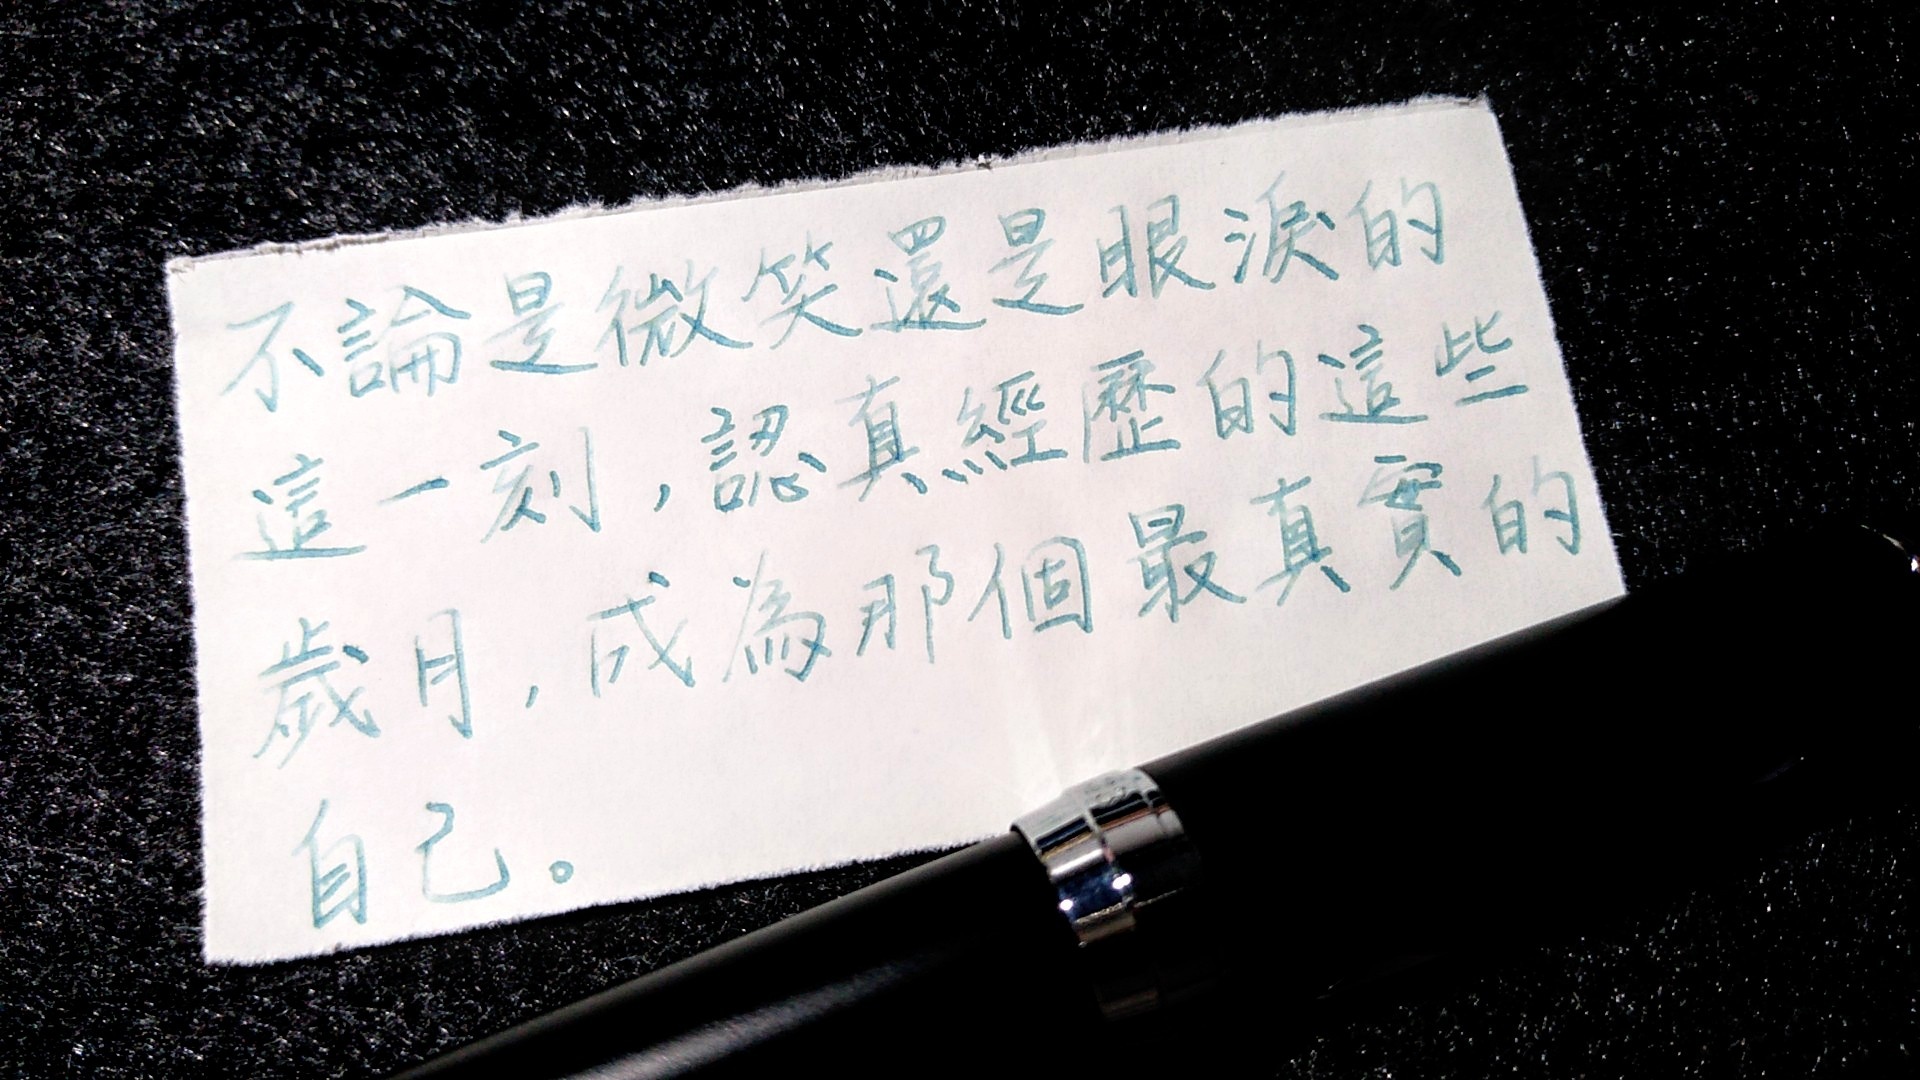 不論是微笑還是眼淚的
這一刻,認真經歷的這些
歲月,成為那個最真實的
自己。